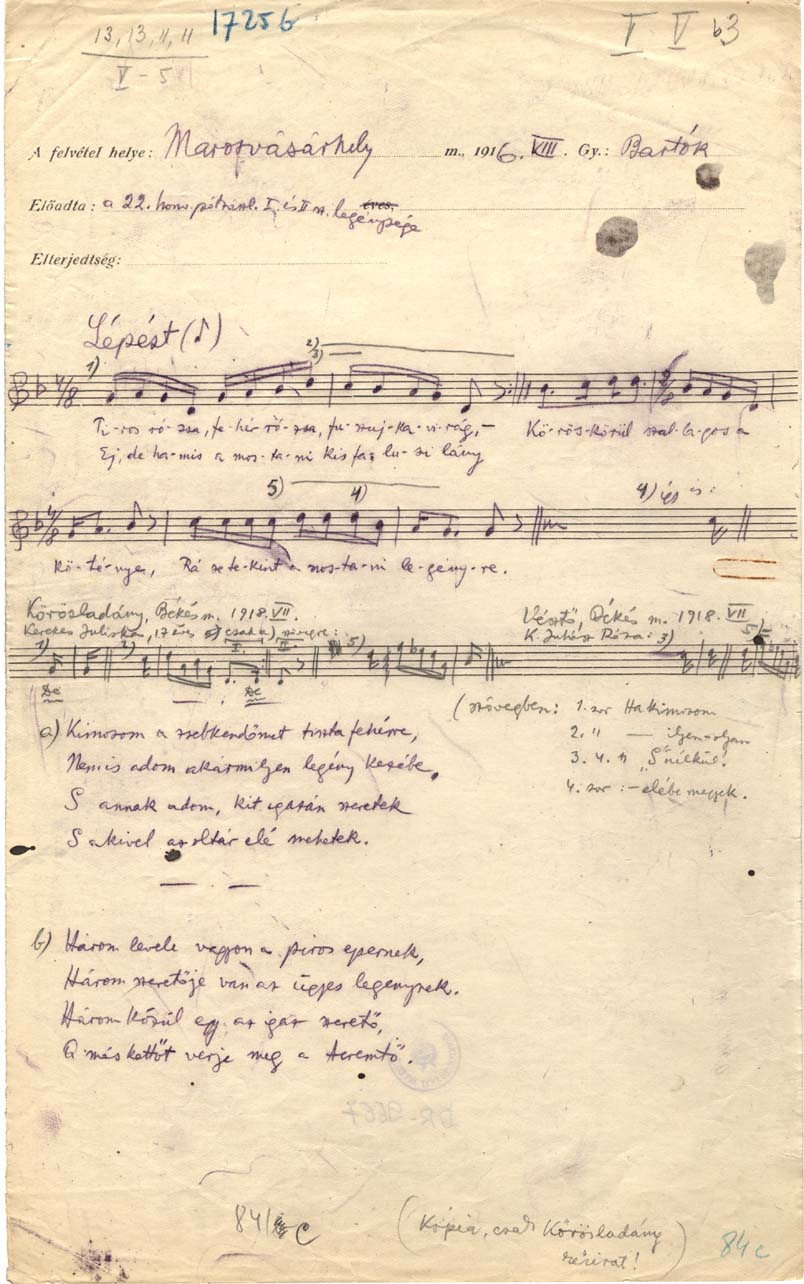 13, 13, 11, 11
17256
I V b3
V – 5
A felvétel helye: Marosvásárhely m., 1916. VIII. Gy.: Bartók
Előadta: a 22. honv. pótzászl. I. és II. sz. legénysége
éves.
Elterjedtség:
Lépést (♪)
1) 2) 3)
4/8 2/8
Pi-ros ró-zsa, fe-hér ró-zsa, fu-szuj-ka-vi-rág,- Kö-rös-körül szal-la-gos a
Ej, de ha-mis a mos-ta-ni kis fa-lu-si lány
5) 4) 4) így is:
4/8
Kö-té-nye, Rá se te-kint a mos-ta-ni le-gény-re.
Körösladány, Békés m. 1918. VII.
Kerekes Juliska, 17 éves csak a) szövegre:
Vésztő, Békés m. 1918. VII
K. Juhász Róza: 3)
1) 2) I. II. 5) 5)
De De
(szövegben: 1. sor Ha kimosom
2. " — ilyen-olyan
3. 4. " „S" nélkül!
4. sor :— elébe megyek.
a) Kimosom a zsebkendőmet tiszta fehérre,
Nem is adom akármilyen legény kezébe,
S annak adom, kit igazán szeretek
S akivel az oltár elé mehetek.
b) Három levele vagyon a piros epernek,
Három szeretője van az ügyes legénynek.
Három közül egy az igaz szerető,
A más kettőt verje meg a teremtő.
BR-9667
84/ c
(Kópia, csak Körösladány
kézirat!)
84 c